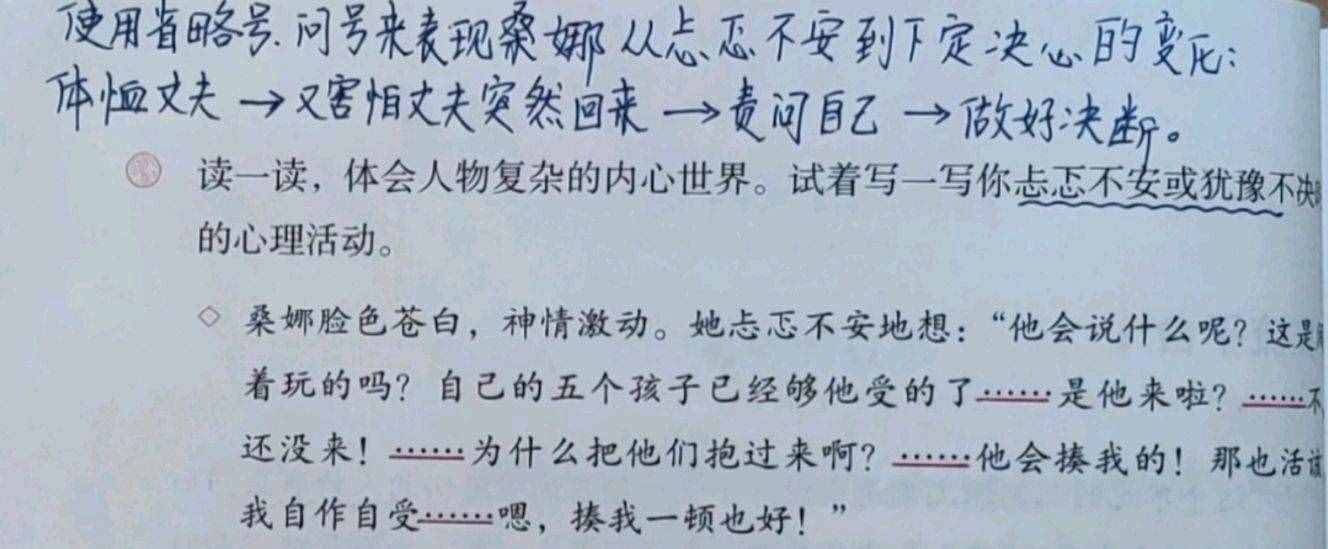 使用省略号.问号来表现桑娜从忐忑不安到下定决心的变化:
体恤丈夫→又害怕丈夫突然回来→责问自己→做好决断。
读一读，体会人物复杂的内心世界。试着写一写你忐忑不安或犹豫不决
的心理活动。
◇ 桑娜脸色苍白，神情激动。她忐忑不安地想：“他会说什么呢？这是
着玩的吗？自己的五个孩子已经够他受的了……是他来啦？……不
还没来！……为什么把他们抱过来啊？……他会揍我的！那也活该
我自作自受……嗯，揍我一顿也好！”